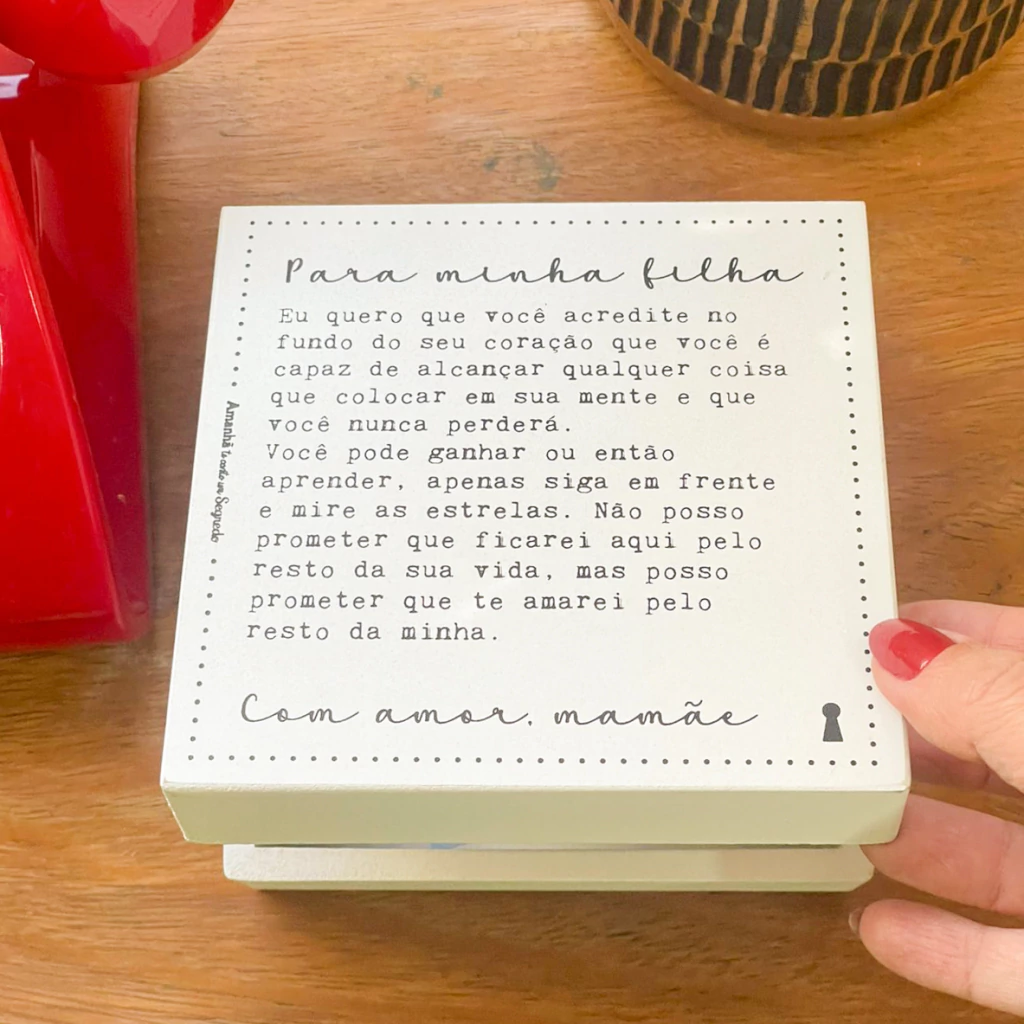 Para minha filha
Eu quero que você acredite no
fundo do seu coração que você é
capaz de alcançar qualquer coisa
que colocar em sua mente e que
você nunca perderá.
Você pode ganhar ou então
aprender, apenas siga em frente
e mire as estrelas. Não posso
prometer que ficarei aqui pelo
resto da sua vida, mas posso
prometer que te amarei pelo
resto da minha.
Com amor, mamãe
Amanhã te conto um Segredo